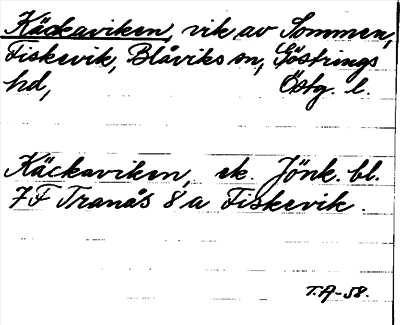 Käckaviken, vik av Sommen,
Fiskevik, Blåviks sn, Göstrings
hd, Östg. l.
Käckaviken, ek. Jönk. bl.
7F Tranås 8 a Fiskevik.
T.A-58.